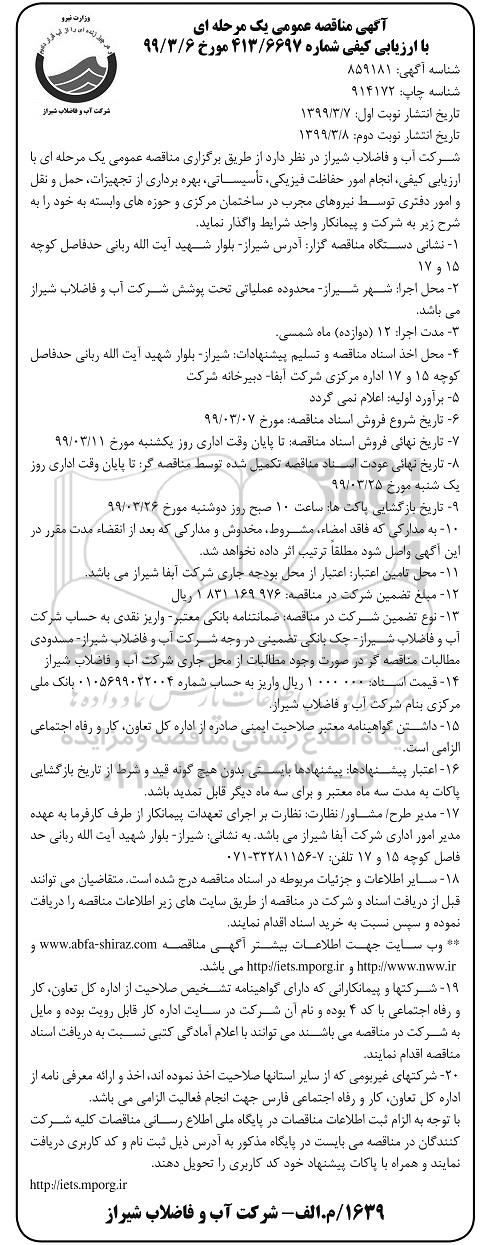 وزارت نیرو
شرکت آب و فاضلاب شیراز
آگهی مناقصه عمومی یک مرحله ای
با ارزیابی کیفی شماره ۴۱۳/۶۶۹۷ مورخ ۹۹/۳/۶
شناسه آگهی: ۸۵۹۱۸۱
شناسه چاپ: ۹۱۴۱۷۲
تاریخ انتشار نوبت اول: ۱۳۹۹/۳/۷
تاریخ انتشار نوبت دوم: ۱۳۹۹/۳/۸
شرکت آب و فاضلاب شیراز در نظر دارد از طریق برگزاری مناقصه عمومی یک مرحله ای با
ارزیابی کیفی، انجام امور حفاظت فیزیکی، تأسیساتی، بهره برداری از تجهیزات، حمل و نقل
و امور دفتری توسط نیروهای مجرب در ساختمان مرکزی و حوزه های وابسته به خود را به
شرح زیر به شرکت و پیمانکار واجد شرایط واگذار نماید.
۱- نشانی دستگاه مناقصه گزار: آدرس شیراز- بلوار شهید آیت الله ربانی حدفاصل کوچه
۱۵ و ۱۷
۲- محل اجرا: شهر شیراز- محدوده عملیاتی تحت پوشش شرکت آب و فاضلاب شیراز
می باشد.
۳- مدت اجرا: ۱۲ (دوازده) ماه شمسی.
۴- محل اخذ اسناد مناقصه و تسلیم پیشنهادات: شیراز- بلوار شهید آیت الله ربانی حدفاصل
کوچه ۱۵ و ۱۷ اداره مرکزی شرکت آبفا- دبیرخانه شرکت
۵- برآورد اولیه: اعلام نمی گردد
۶- تاریخ شروع فروش اسناد مناقصه: مورخ ۹۹/۰۳/۰۷
۷- تاریخ نهائی فروش اسناد مناقصه: تا پایان وقت اداری روز یکشنبه مورخ ۹۹/۰۳/۱۱
۸- تاریخ نهائی عودت اسناد مناقصه تکمیل شده توسط مناقصه گر: تا پایان وقت اداری روز
یک شنبه مورخ ۹۹/۰۳/۲۵
۹- تاریخ بازگشایی پاکت ها: ساعت ۱۰ صبح روز دوشنبه مورخ ۹۹/۰۳/۲۶
۱۰- به مدارکی که فاقد امضاء، مشروط، مخدوش و مدارکی که بعد از انقضاء مدت مقرر در
این آگهی واصل شود مطلقاً ترتیب اثر داده نخواهد شد.
۱۱- محل تامین اعتبار: اعتبار از محل بودجه جاری شرکت آبفا شیراز می باشد.
۱۲- مبلغ تضمین شرکت در مناقصه: ۹۷۶ ۱۶۹ ۸۳۱ ۱ ریال
۱۳- نوع تضمین شرکت در مناقصه: ضمانتنامه بانکی معتبر- واریز نقدی به حساب شرکت
آب و فاضلاب شیراز- چک بانکی تضمینی در وجه شرکت آب و فاضلاب شیراز- مسدودی
مطالبات مناقصه گر در صورت وجود مطالبات از محل جاری شرکت آب و فاضلاب شیراز
۱۴- قیمت اسناد: ۰۰۰ ۰۰۰ ۱ ریال واریز به حساب شماره ۰۱۰۵۶۹۹۰۲۲۰۰۴ بانک ملی
مرکزی بنام شرکت آب و فاضلاب شیراز.
۱۵- داشتن گواهینامه معتبر صلاحیت ایمنی صادره از اداره کل تعاون، کار و رفاه اجتماعی
الزامی است.
۱۶- اعتبار پیشنهادها: پیشنهادها بایستی بدون هیچ گونه قید و شرط از تاریخ بازگشایی
پاکات به مدت سه ماه معتبر و برای سه ماه دیگر قابل تمدید باشد.
۱۷- مدیر طرح/ مشاور/ نظارت: نظارت بر اجرای تعهدات پیمانکار از طرف کارفرما به عهده
مدیر امور اداری شرکت آبفا شیراز می باشد. به نشانی: شیراز- بلوار شهید آیت الله ربانی حد
فاصل کوچه ۱۵ و ۱۷ تلفن: ۷-۳۲۲۸۱۱۵۶-۰۷۱
۱۸- سایر اطلاعات و جزئیات مربوطه در اسناد مناقصه درج شده است. متقاضیان می توانند
قبل از دریافت اسناد و شرکت در مناقصه از طریق سایت های زیر اطلاعات مناقصه را دریافت
نموده و سپس نسبت به خرید اسناد اقدام نمایند.
** وب سایت جهت اطلاعات بیشتر آگهی مناقصه www.abfa-shiraz.com و
http://www.nww.ir و http://iets.mporg.ir می باشد.
۱۹- شرکتها و پیمانکارانی که دارای گواهینامه تشخیص صلاحیت از اداره کل تعاون، کار
و رفاه اجتماعی با کد ۴ بوده و نام آن شرکت در سایت اداره کار قابل رویت بوده و مایل
به شرکت در مناقصه می باشند می توانند با اعلام آمادگی کتبی نسبت به دریافت اسناد
مناقصه اقدام نمایند.
۲۰- شرکتهای غیربومی که از سایر استانها صلاحیت اخذ نموده اند، اخذ و ارائه معرفی نامه از
اداره کل تعاون، کار و رفاه اجتماعی فارس جهت انجام فعالیت الزامی می باشد.
با توجه به الزام ثبت اطلاعات مناقصات در پایگاه ملی اطلاع رسانی مناقصات کلیه شرکت
کنندگان در مناقصه می بایست در پایگاه مذکور به آدرس ذیل ثبت نام و کد کاربری دریافت
نمایند و همراه با پاکات پیشنهاد خود کد کاربری را تحویل دهند.
http://iets.mporg.ir
۱۶۳۹/م.الف- شرکت آب و فاضلاب شیراز